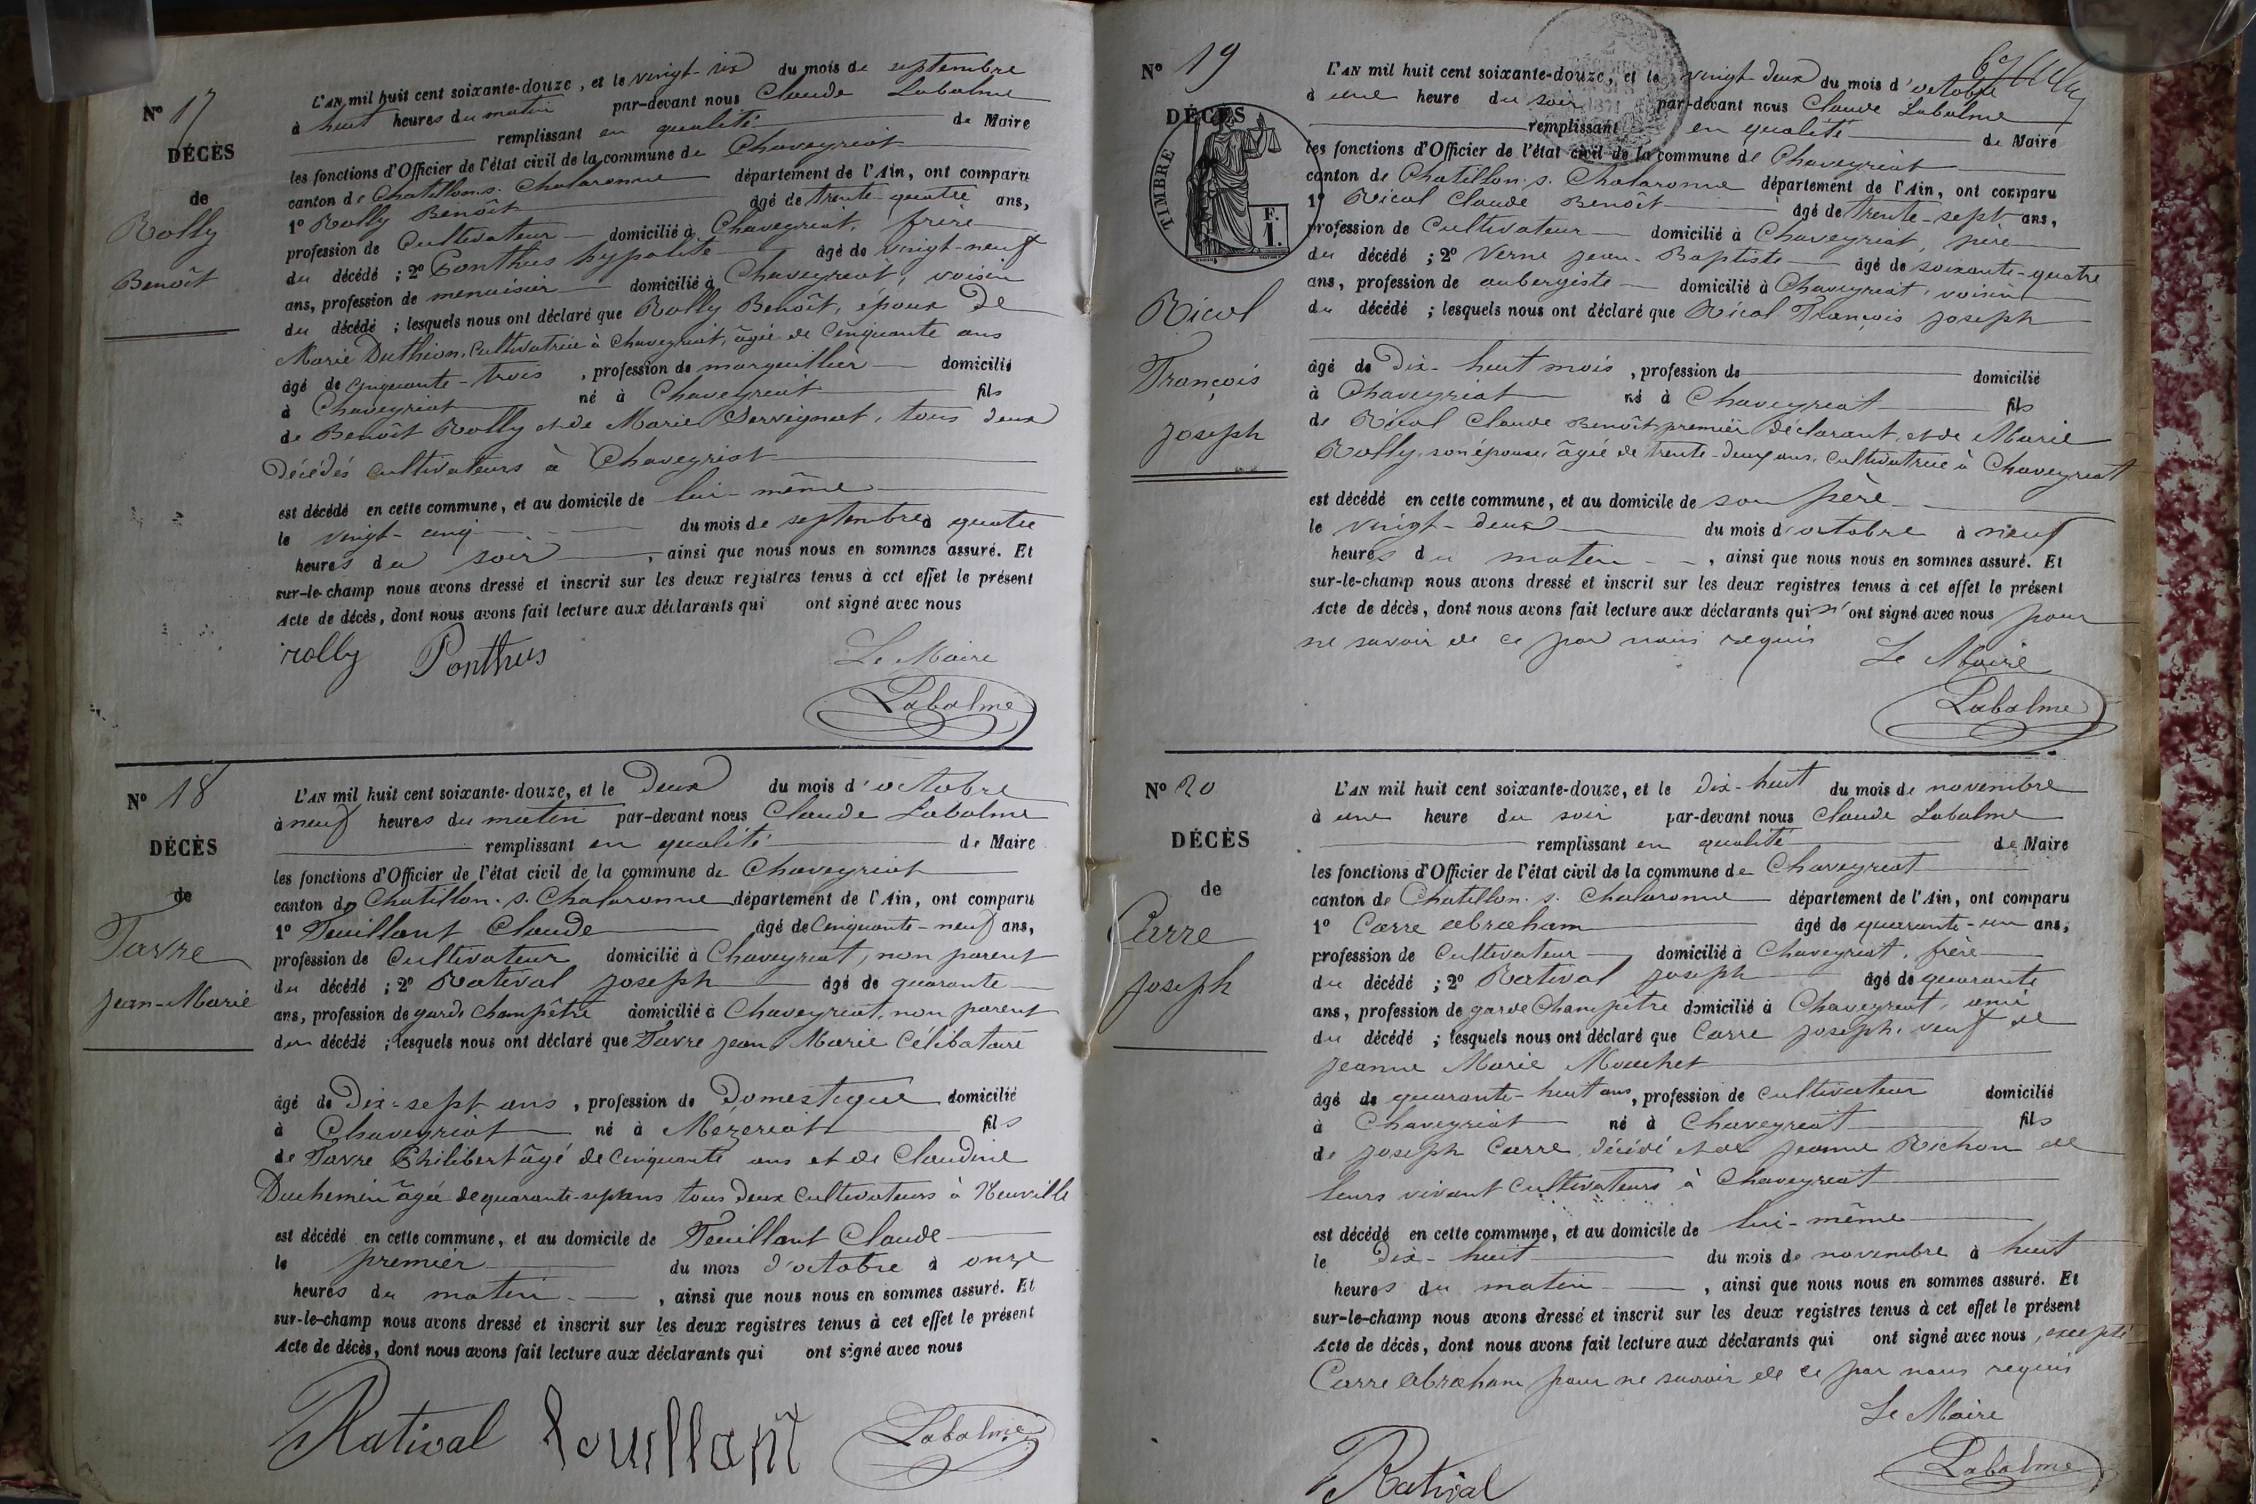 N° 17
DÉCÈS
de
Rolly
Benoît
L'AN mil huit cent soixante-douze, et le vingt-six du mois de septembre
à huit heures du matin par-devant nous Claude Labalme
remplissant en qualité de Maire
les fonctions d'Officier de l'état civil de la commune de Chaveyriat
canton de Chatillon. s. Chalaronne département de l'Ain, ont comparu
1° Rolly Benoît âgé de trente-quatre ans,
profession de Cultivateur domicilié à Chaveyriat, frère
du décédé ; 2° Ponthus hypolite âgé de vingt-neuf
ans, profession de menuisier domicilié à Chaveyriat, voisin
du décédé ; lesquels nous ont déclaré que Rolly Benoît, époux de
Marie Duthion, Cultivatrice à Chaveyriat, âgée de Cinquante ans
âgé de Cinquante-trois , profession de marguillier domicilié
à Chaveyriat né à Chaveyriat fils
de Benoît Rolly et de Marie Servignat, tous deux
Décédés cultivateurs à Chaveyriat
est décédé en cette commune, et au domicile de lui-même
le vingt-cinq du mois de septembre à quatre
heures du soir , ainsi que nous nous en sommes assuré. Et
sur-le-champ nous avons dressé et inscrit sur les deux registres tenus à cet effet le présent
Acte de décès, dont nous avons fait lecture aux déclarants qui ont signé avec nous
rolly Ponthus Le Maire
Labalme
N° 18
DÉCÈS
de
Favre
Jean-Marie
L'AN mil huit cent soixante-douze, et le Deux du mois d'octobre
à neuf heures du matin par-devant nous Claude Labalme
remplissant en qualité de Maire
les fonctions d'Officier de l'état civil de la commune de Chaveyriat
canton de Chatillon. s. Chalaronne département de l'Ain, ont comparu
1° Feuillant Claude âgé de Cinquante-neuf ans,
profession de Cultivateur domicilié à Chaveyriat, non parent
du décédé ; 2° Ratival Joseph âgé de quarante
ans, profession de garde Champêtre domicilié à Chaveyriat, non parent
du décédé ; lesquels nous ont déclaré que Favre Jean Marie Célibataire
âgé de Dix-sept ans , profession de Domestique domicilié
à Chaveyriat né à Mezeriat fils
de Favre Philibert âgé de Cinquante ans et de Claudine
Duchemin âgée de quarante-sept ans tous deux Cultivateurs à Neuville
est décédé en cette commune, et au domicile de Feuillant Claude
le premier du mois d'octobre à onze
heures du matin , ainsi que nous nous en sommes assuré. Et
sur-le-champ nous avons dressé et inscrit sur les deux registres tenus à cet effet le présent
Acte de décès, dont nous avons fait lecture aux déclarants qui ont signé avec nous
Ratival Labalme
N° 19
DÉCÈS
TIMBRE
F.
1.
Ricol
François
Joseph
L'AN mil huit cent soixante-douze, et le vingt-deux du mois d'octobre
à une heure du soir par-devant nous Claude Labalme
remplissant en qualité de Maire
les fonctions d'Officier de l'état civil de la commune de Chaveyriat
canton de Chatillon. s. Chalaronne département de l'Ain, ont comparu
1° Ricol Claude Benoît âgé de trente-sept ans,
profession de Cultivateur domicilié à Chaveyriat, père
du décédé ; 2° Verne Jean-Baptiste âgé de soixante-quatre
ans, profession de aubergiste domicilié à Chaveyriat, voisin
du décédé ; lesquels nous ont déclaré que Ricol François Joseph
âgé de Dix-huit mois , profession de domicilié
à Chaveyriat né à Chaveyriat fils
de Ricol Claude Benoît premier déclarant, et de Marie
Rolly, son épouse, âgée de trente-deux ans, Cultivatrice à Chaveyriat
est décédé en cette commune, et au domicile de son père
le vingt-deux du mois d'octobre à neuf
heures du matin , ainsi que nous nous en sommes assuré. Et
sur-le-champ nous avons dressé et inscrit sur les deux registres tenus à cet effet le présent
Acte de décès, dont nous avons fait lecture aux déclarants qui n'ont signé avec nous pour
ne savoir de ce par nous requis
Le Maire
Labalme
N° 20
DÉCÈS
de
Carre
Joseph
L'AN mil huit cent soixante-douze, et le Dix-huit du mois de novembre
à une heure du soir par-devant nous Claude Labalme
remplissant en qualité de Maire
les fonctions d'Officier de l'état civil de la commune de Chaveyriat
canton de Chatillon. s. Chalaronne département de l'Ain, ont comparu
1° Carre abraham âgé de quarante-un ans,
profession de Cultivateur domicilié à Chaveyriat, frère
du décédé ; 2° Ratival Joseph âgé de quarante
ans, profession de garde Champêtre domicilié à Chaveyriat, ami
du décédé ; lesquels nous ont déclaré que Carre Joseph, veuf de
Jeanne Marie Mouchet
âgé de quarante-huit ans , profession de cultivateur domicilié
à Chaveyriat né à Chaveyriat fils
de Joseph Carre, décédé et de Jeanne Richon de
leurs vivant Cultivateurs à Chaveyriat
est décédé en cette commune, et au domicile de lui-même
le Dix-huit du mois de novembre à huit
heures du matin , ainsi que nous nous en sommes assuré. Et
sur-le-champ nous avons dressé et inscrit sur les deux registres tenus à cet effet le présent
Acte de décès, dont nous avons fait lecture aux déclarants qui ont signé avec nous, excepté
Carre abraham pour ne savoir de ce par nous requis
Le Maire
Ratival Labalme